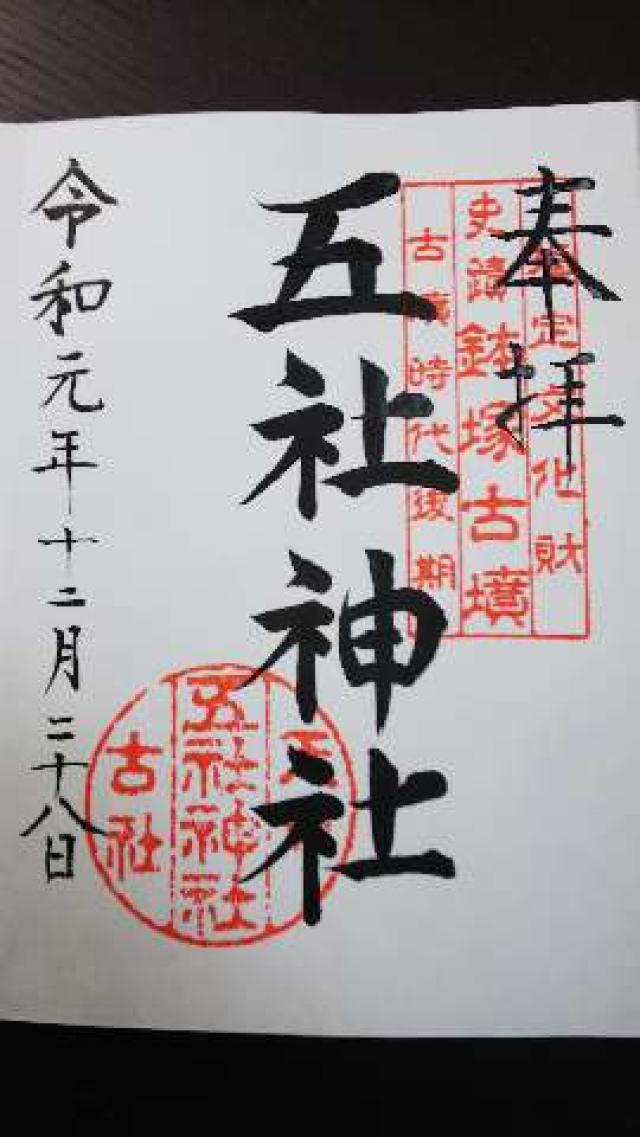 奉拝
定文化財
史蹟鉢塚古墳
古墳時代後期
五社神社
五社神社
古社
令和元年十二月二十八日